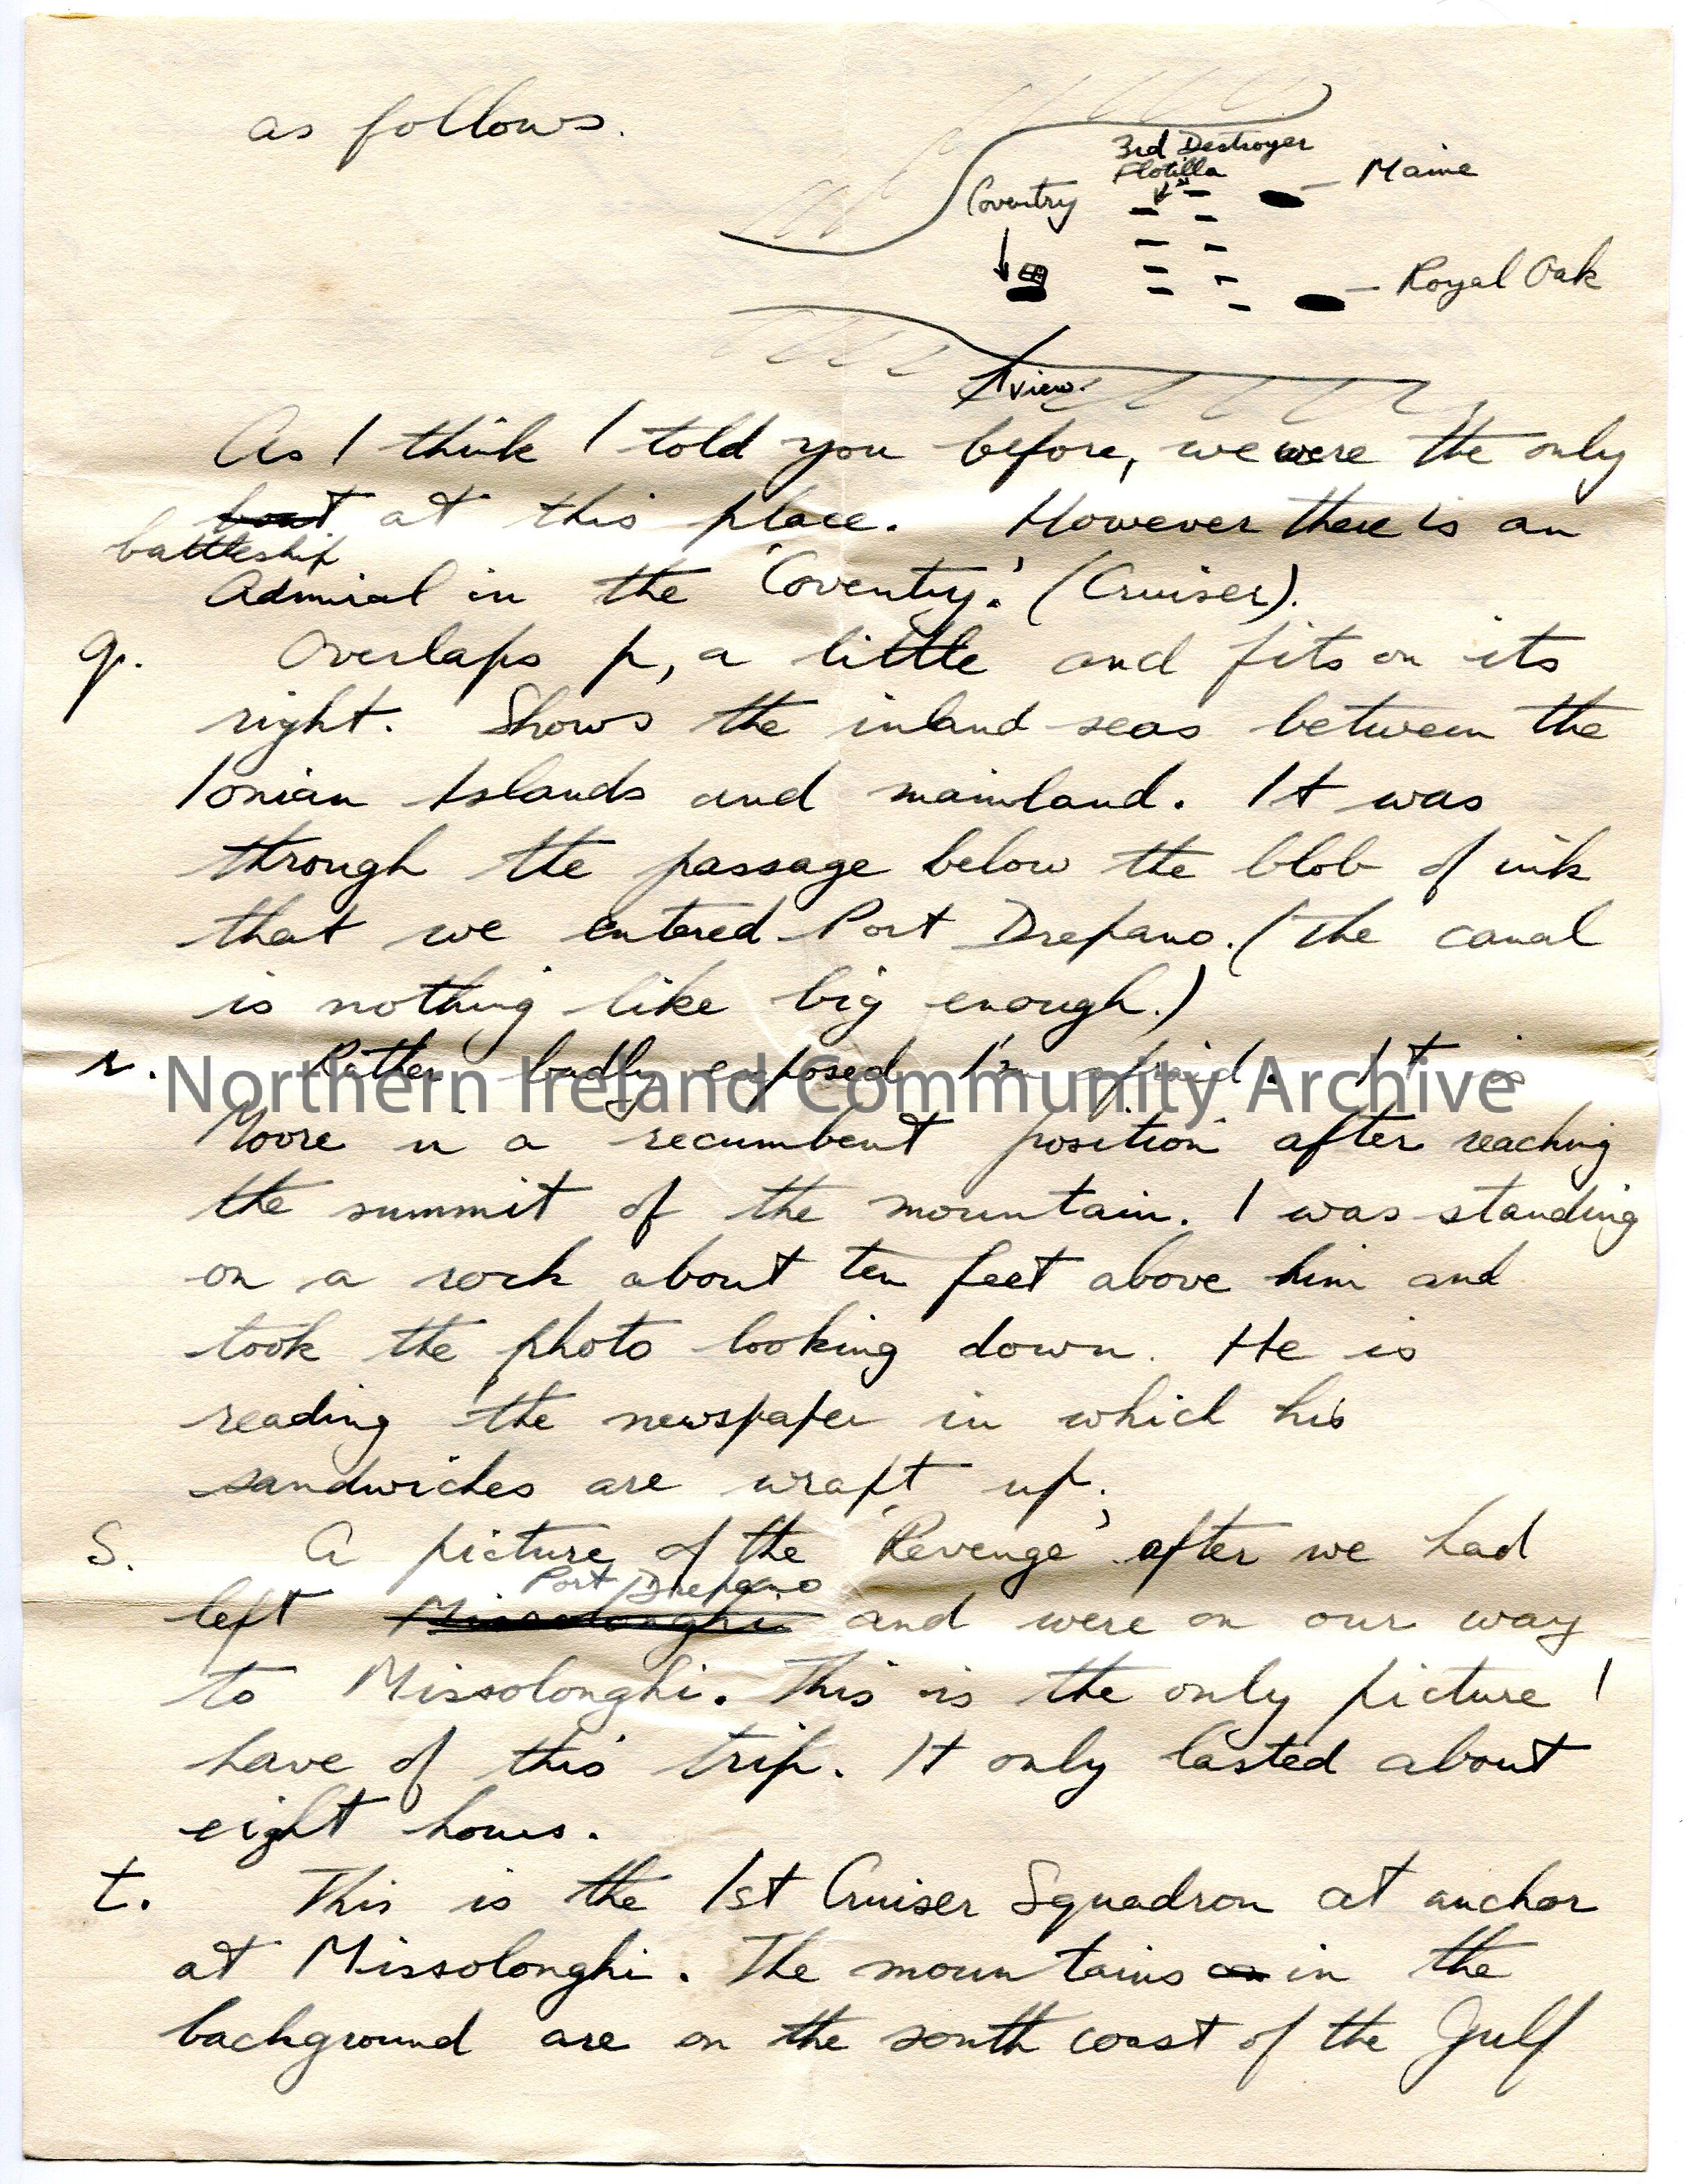 as follows.
3rd Destroyer
Flotilla
Maine
Coventry
Royal Oak
view.
As I think I told you before, we were the only
boat at this place. However there is an
battleship
Admiral in the 'Coventry.' (Cruiser).
q. Overlaps p, a little and fits on its
right. Shows the inland seas between the
Ionian Islands and mainland. It was
through the passage below the blob of ink
that we entered Port Drepano. (The canal
is nothing like big enough.)
r. Rather badly exposed I'm afraid. It is
Northern Ireland Community Archive
Moore in a recumbent position after reaching
the summit of the mountain. I was standing
on a rock about ten feet above him and
took the photo looking down. He is
reading the newspaper in which his
sandwiches are wrapt up.
s. A picture of the 'Revenge' after we had
Port Drepano
left Missolonghi and were on our way
to Missolonghi. This is the only picture I
have of this trip. It only lasted about
eight hours.
t. This is the 1st Cruiser Squadron at anchor
at Missolonghi. The mountains on in the
background are on the south coast of the Gulf